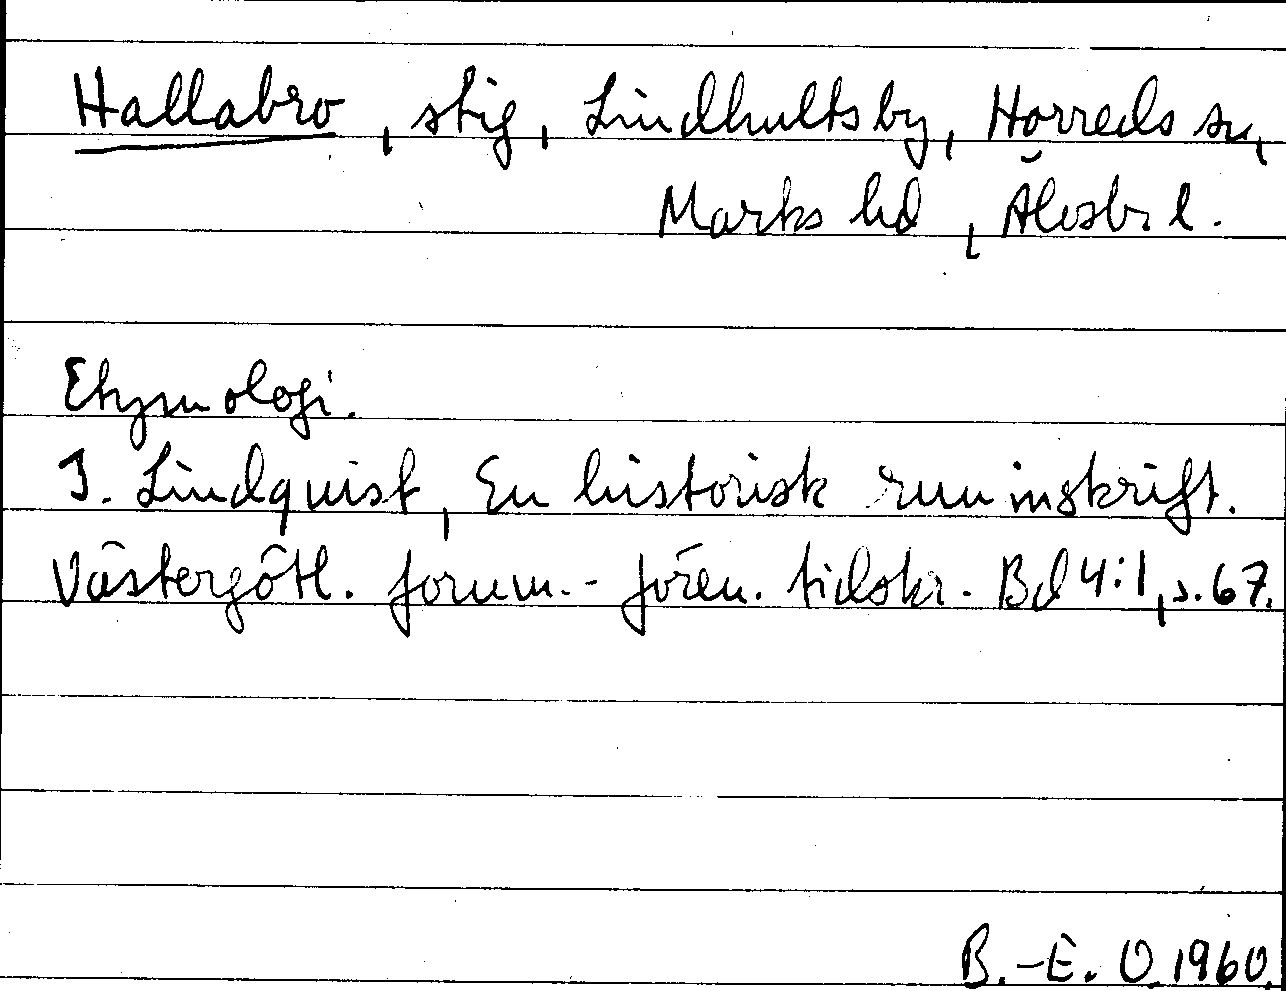 Hallabro, stig, Lindhults by, Horreds sn,
Marks hd, Älvsb. l.
Etymologi.
I. Lindquist, En historisk runinskrift.
Västergötl. fornm.-fören. tidskr. Bd 4:1, s. 67.
B.-E. O. 1960.